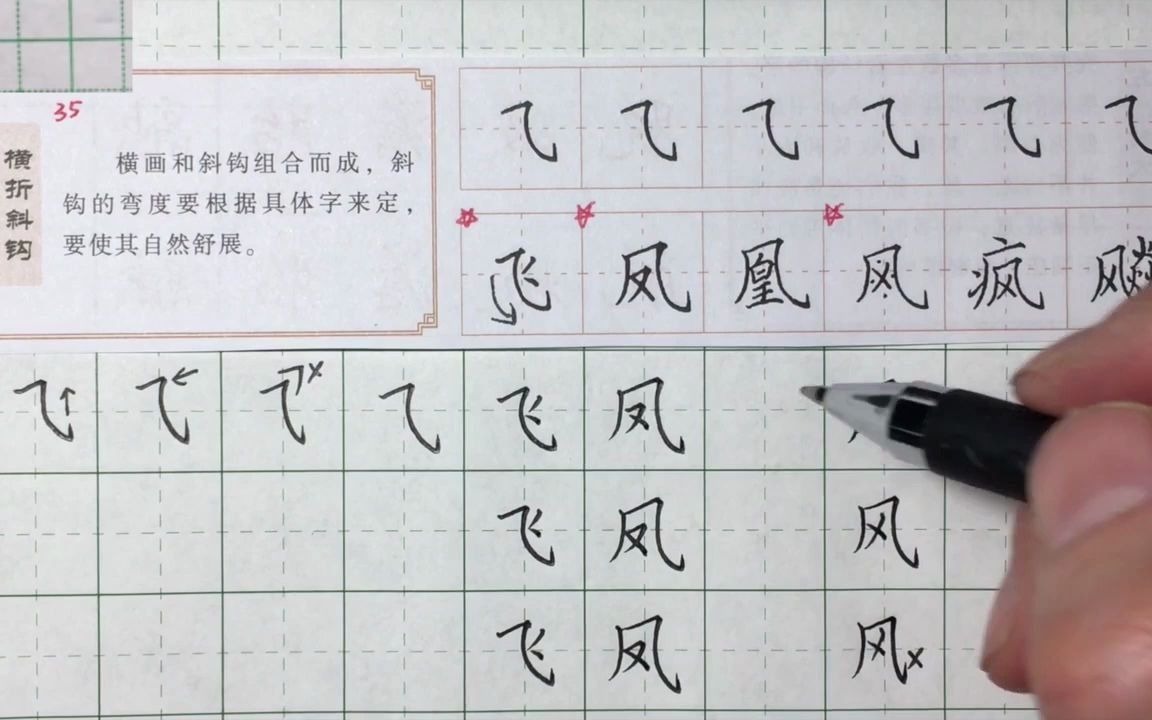 35
横折斜钩
横画和斜钩组合而成，斜
钩的弯度要根据具体字来定，
要使其自然舒展。
⺄ ⺄ ⺄ ⺄ ⺄ ⺄
飞 凤 凰 风 疯 飚
⺄ ⺄ ⺄ × ⺄ 飞 凤
飞 凤 风
飞 凤 风 ×